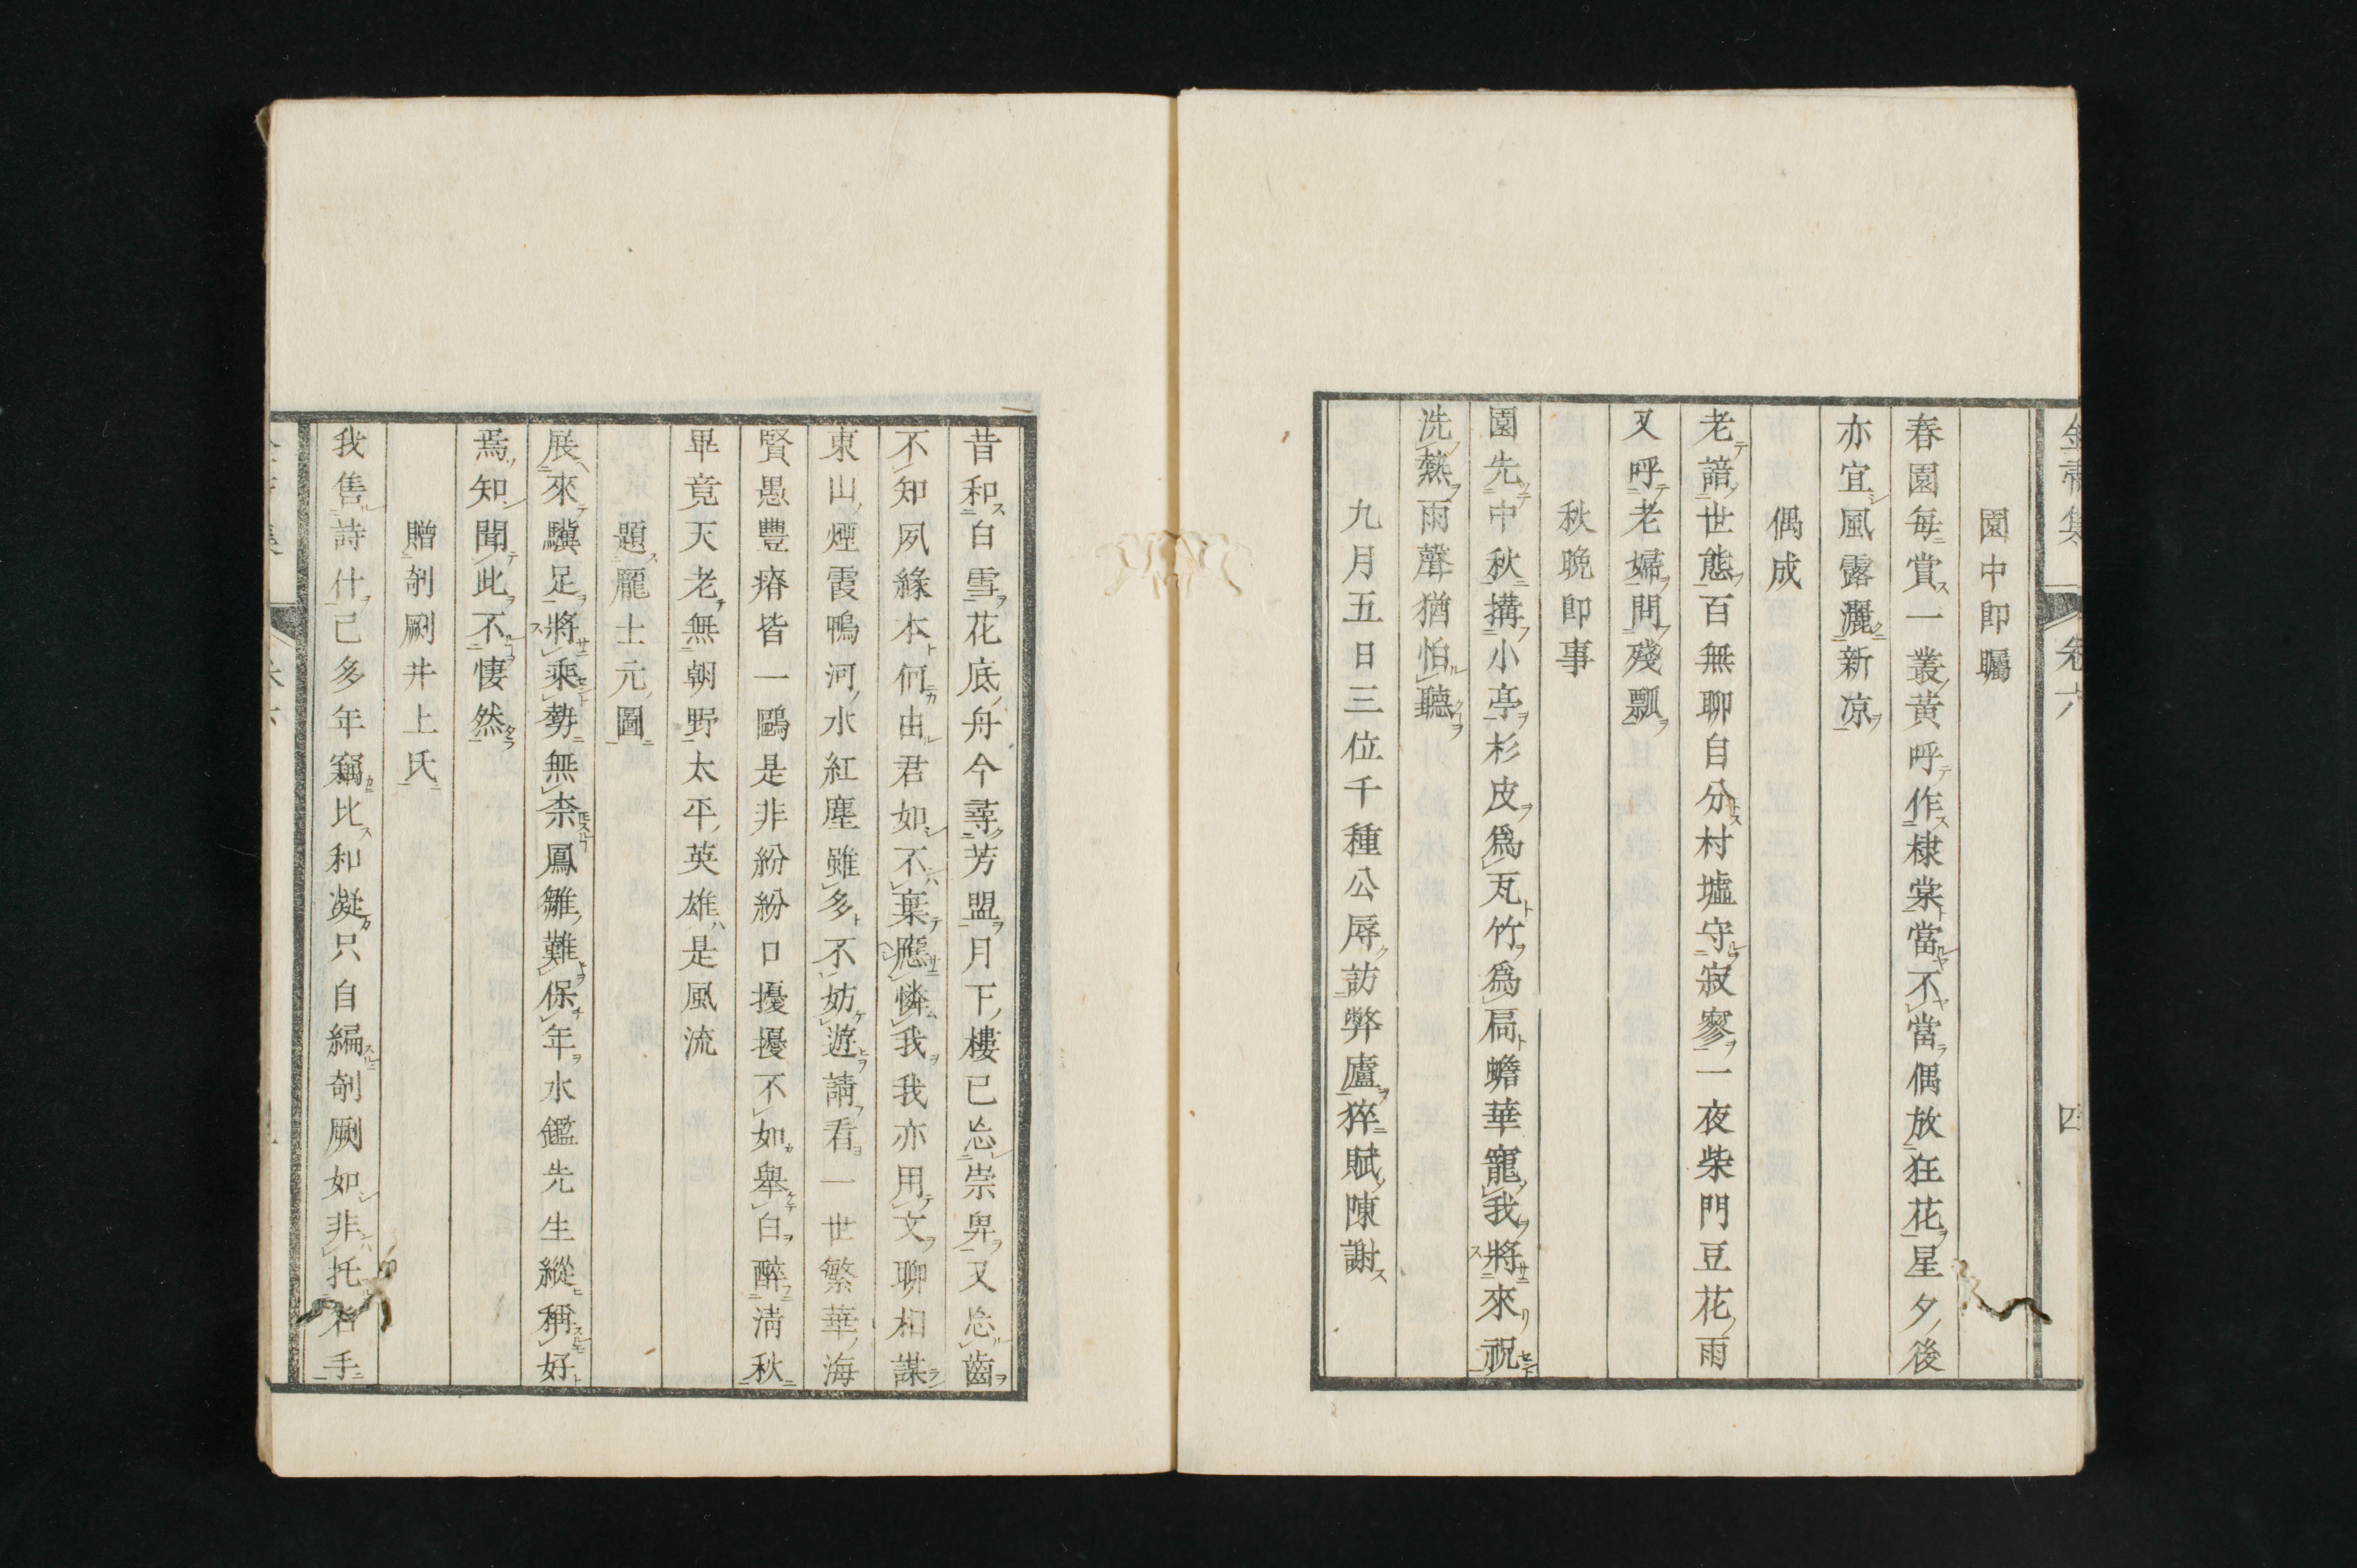 園中即矚
春園每賞一叢黃呼作棣棠當不當偶放狂花星夕後
亦宜風露灑新凉
偶成
老諳世態百無聊自分村墟守寂寥一夜柴門豆花雨
又呼老婦問殘瓢
秋晩即事
園先中秋搆小亭杉皮爲瓦竹爲扃蟾華寵我將來祝
洗熱雨聲猶怕聽
九月五日三位千種公辱訪弊廬猝賦陳謝
昔和白雪花底舟今尋芳盟月下樓已忘崇卑又忘齒
不知夙緣本何由君如不棄應憐我我亦用文聊相謀
東山煙霞鴨河水紅塵雖多不妨遊請看一世繁華海
賢愚豐瘠皆一鷗是非紛紛口擾擾不如舉白醉淸秋
畢竟天老無朝野太平英雄是風流
題龐士元圖
展來驥足將乘勢無柰鳳雛難保年水鑑先生縱稱好
焉知聞此不悽然
贈剞劂井上氏
我售詩什已多年竊比和凝只自編剞劂如非托名手
卷六
四